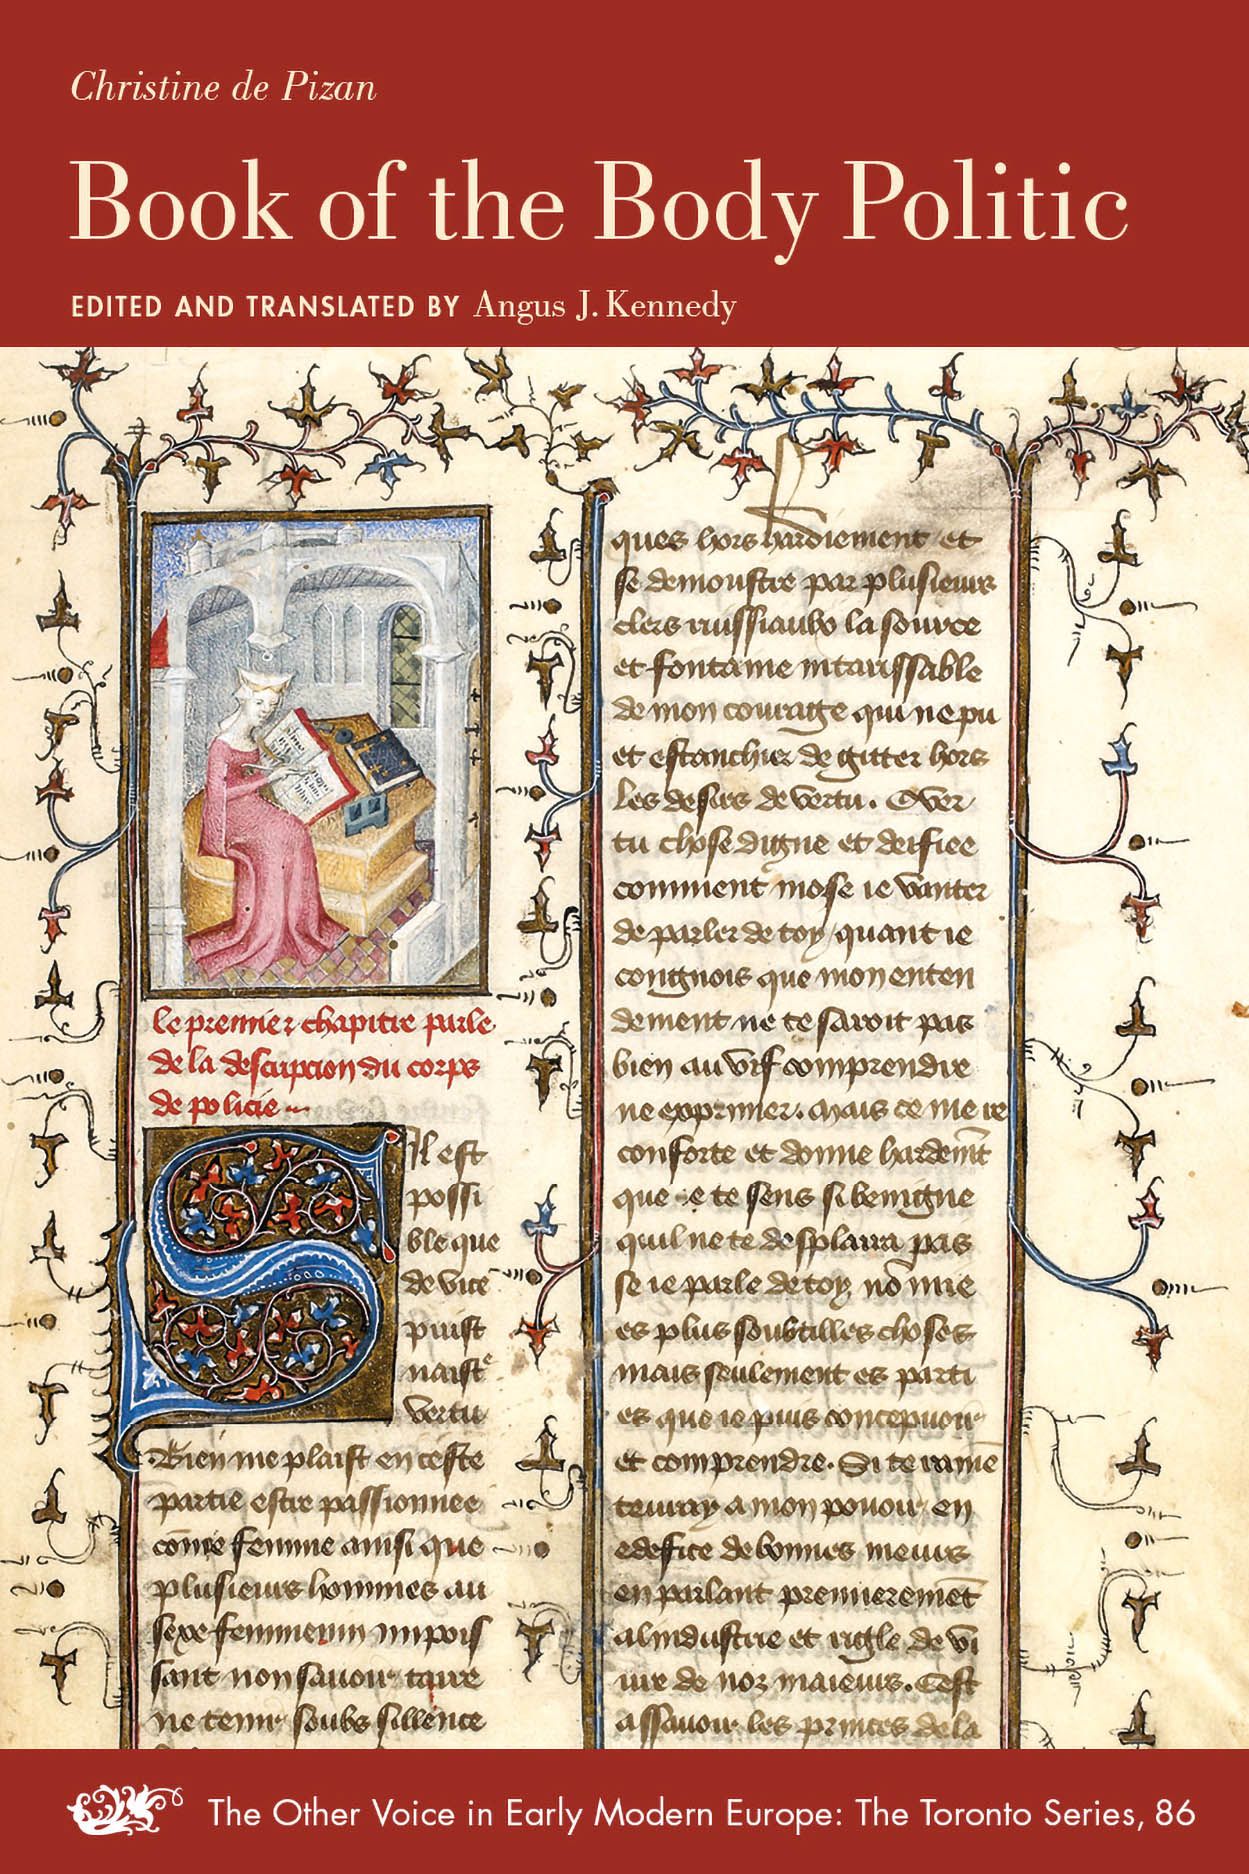 Christine de Pizan
Book of the Body Politic
EDITED AND TRANSLATED BY Angus J. Kennedy
le premier chapitre parle
de la descripcion du corps
de policie
Il est
possi
ble que
de vice
puist
naistᵉ
vertu
Bien me plaist en ceste
partie estre passionnee
co͞me femme ainsi que
plusieurs hommes au
sexe femmenin impo
sant non savoir taire
ne tenir soubs sillence
ques hors hardiement et
se demoustre par plusieurs
clers ruissiaulx la source
et fontaine intarissable
de mon courage qui ne pu
et estanchier de gitter hors
les desirs de vertu. O ver
tu chose digne et deifiee
comment mose ie vanter
de parler de toy quant ie
congnois que mon enten
dement ne te saroit pas
bien au vif comprendre
ne exprimer. mais ce me re
conforte et donne hardem̄t
que ie te sens si benigne
quil ne te desplaira pas
se ie parle de toy nō mie
es plus soubtilles choses
mais seulement es parti
es que ie puis concepuoir
et comprendre. Si te
a mon pouoir en
edefice de bonnes meurs
en parlant premieremēt
al industrie et rigle de vi
ure de noz maieurs. Cest
assauoir les princes de la
The Other Voice in Early Modern Europe: The Toronto Series, 86